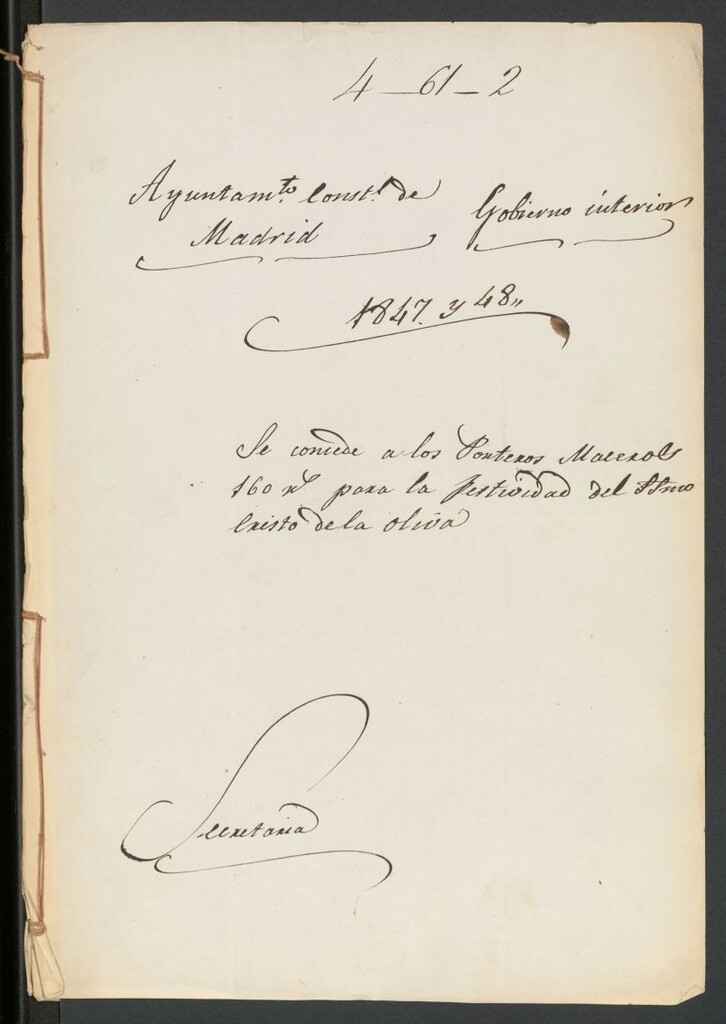 4-61-2
Ayuntam.to Const.l de
Madrid
Gobierno interior
1847. y 48,,
Se concede a los Porteros Maceros
160 rs para la festividad del SSmo
Cristo de la oliva
Secretaria